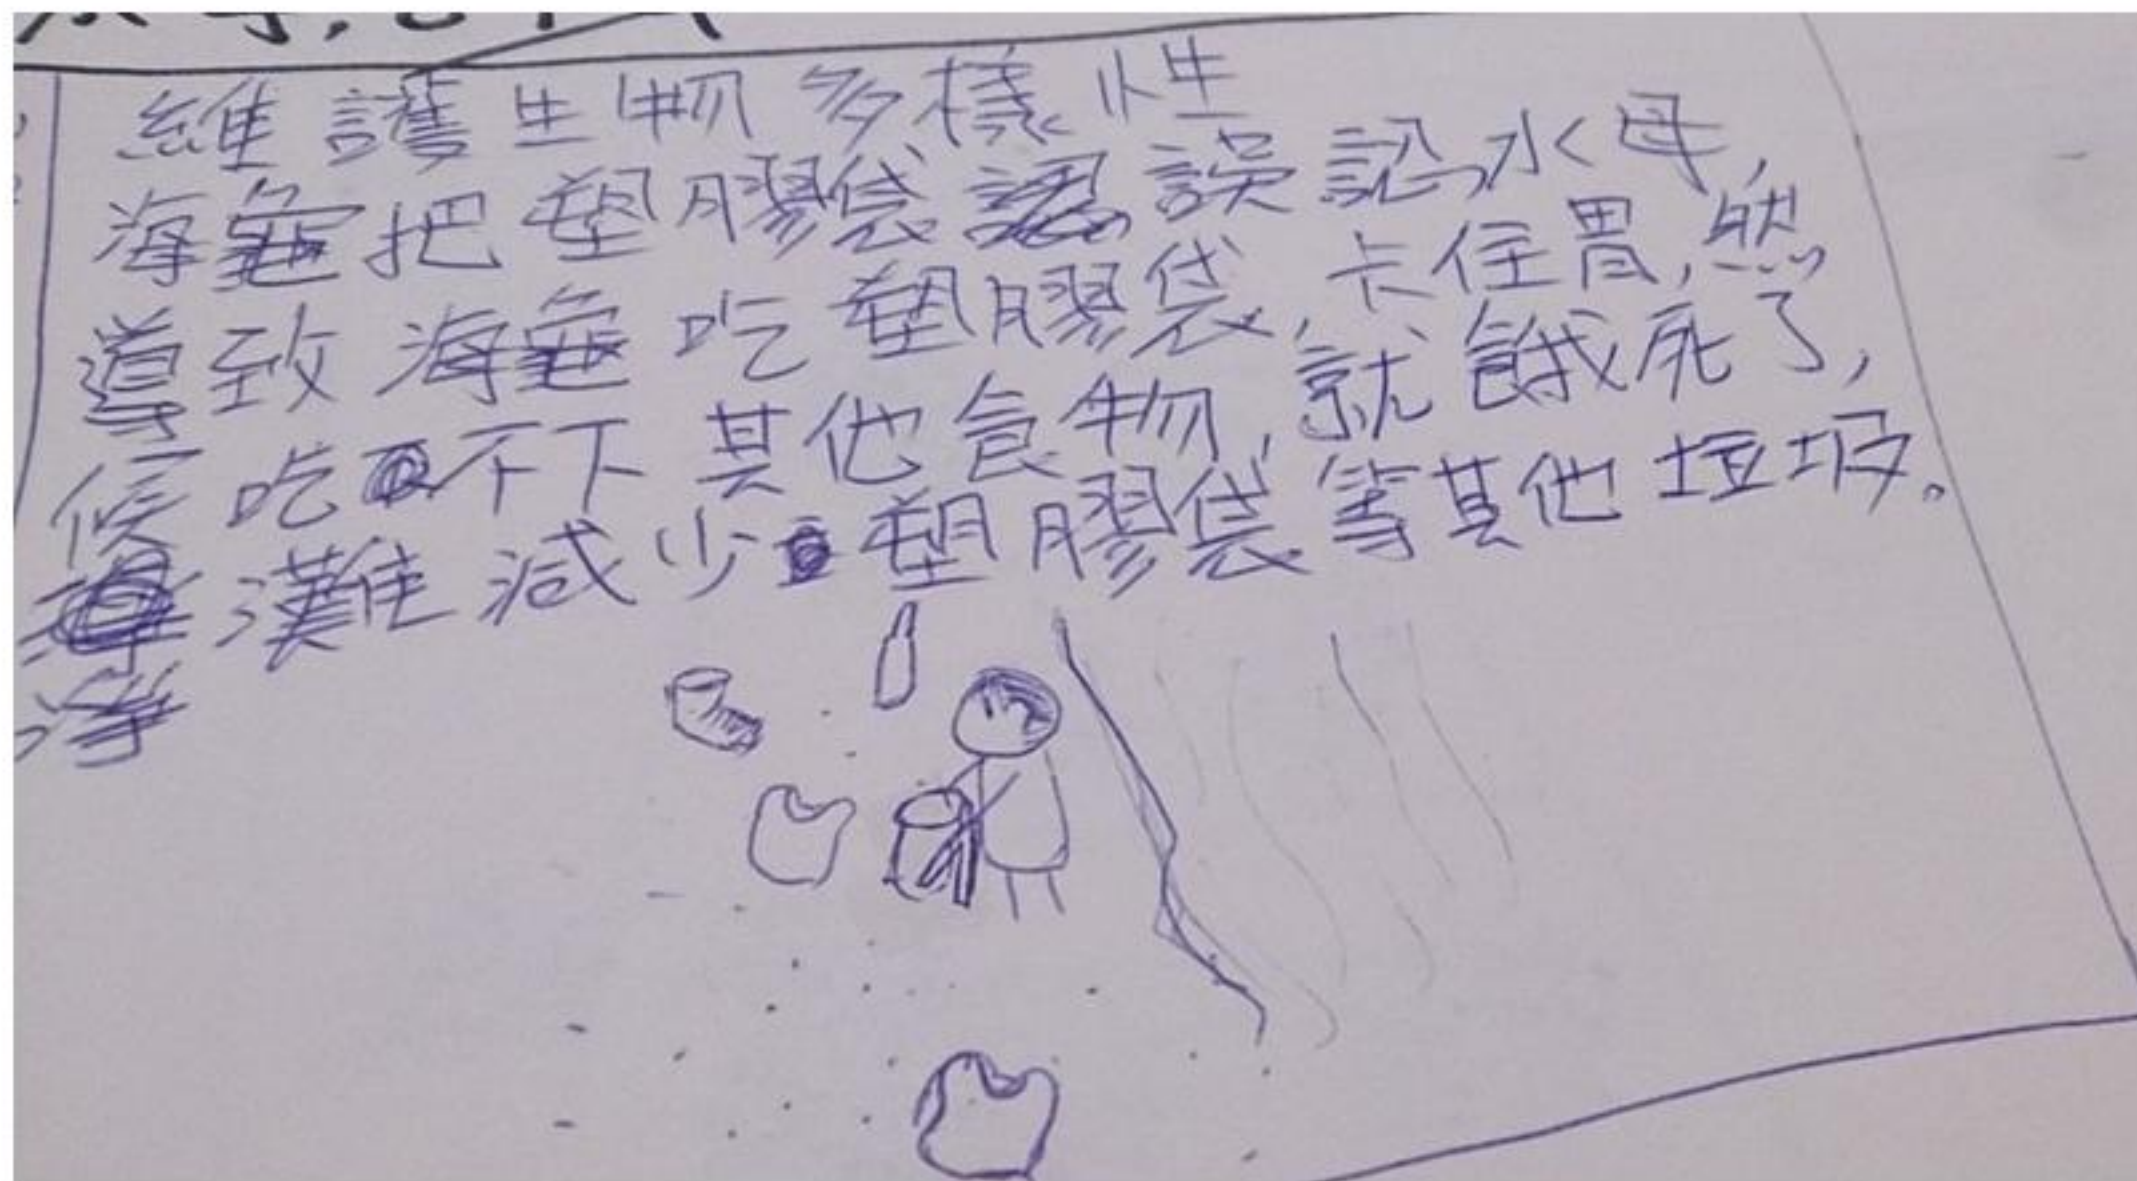 維護生物多樣性
海龜把塑膠袋誤認水母,
導致海龜吃塑膠袋,卡住胃,然
候吃不下其他食物,就餓死了,
淨灘減少塑膠袋等其他垃圾。